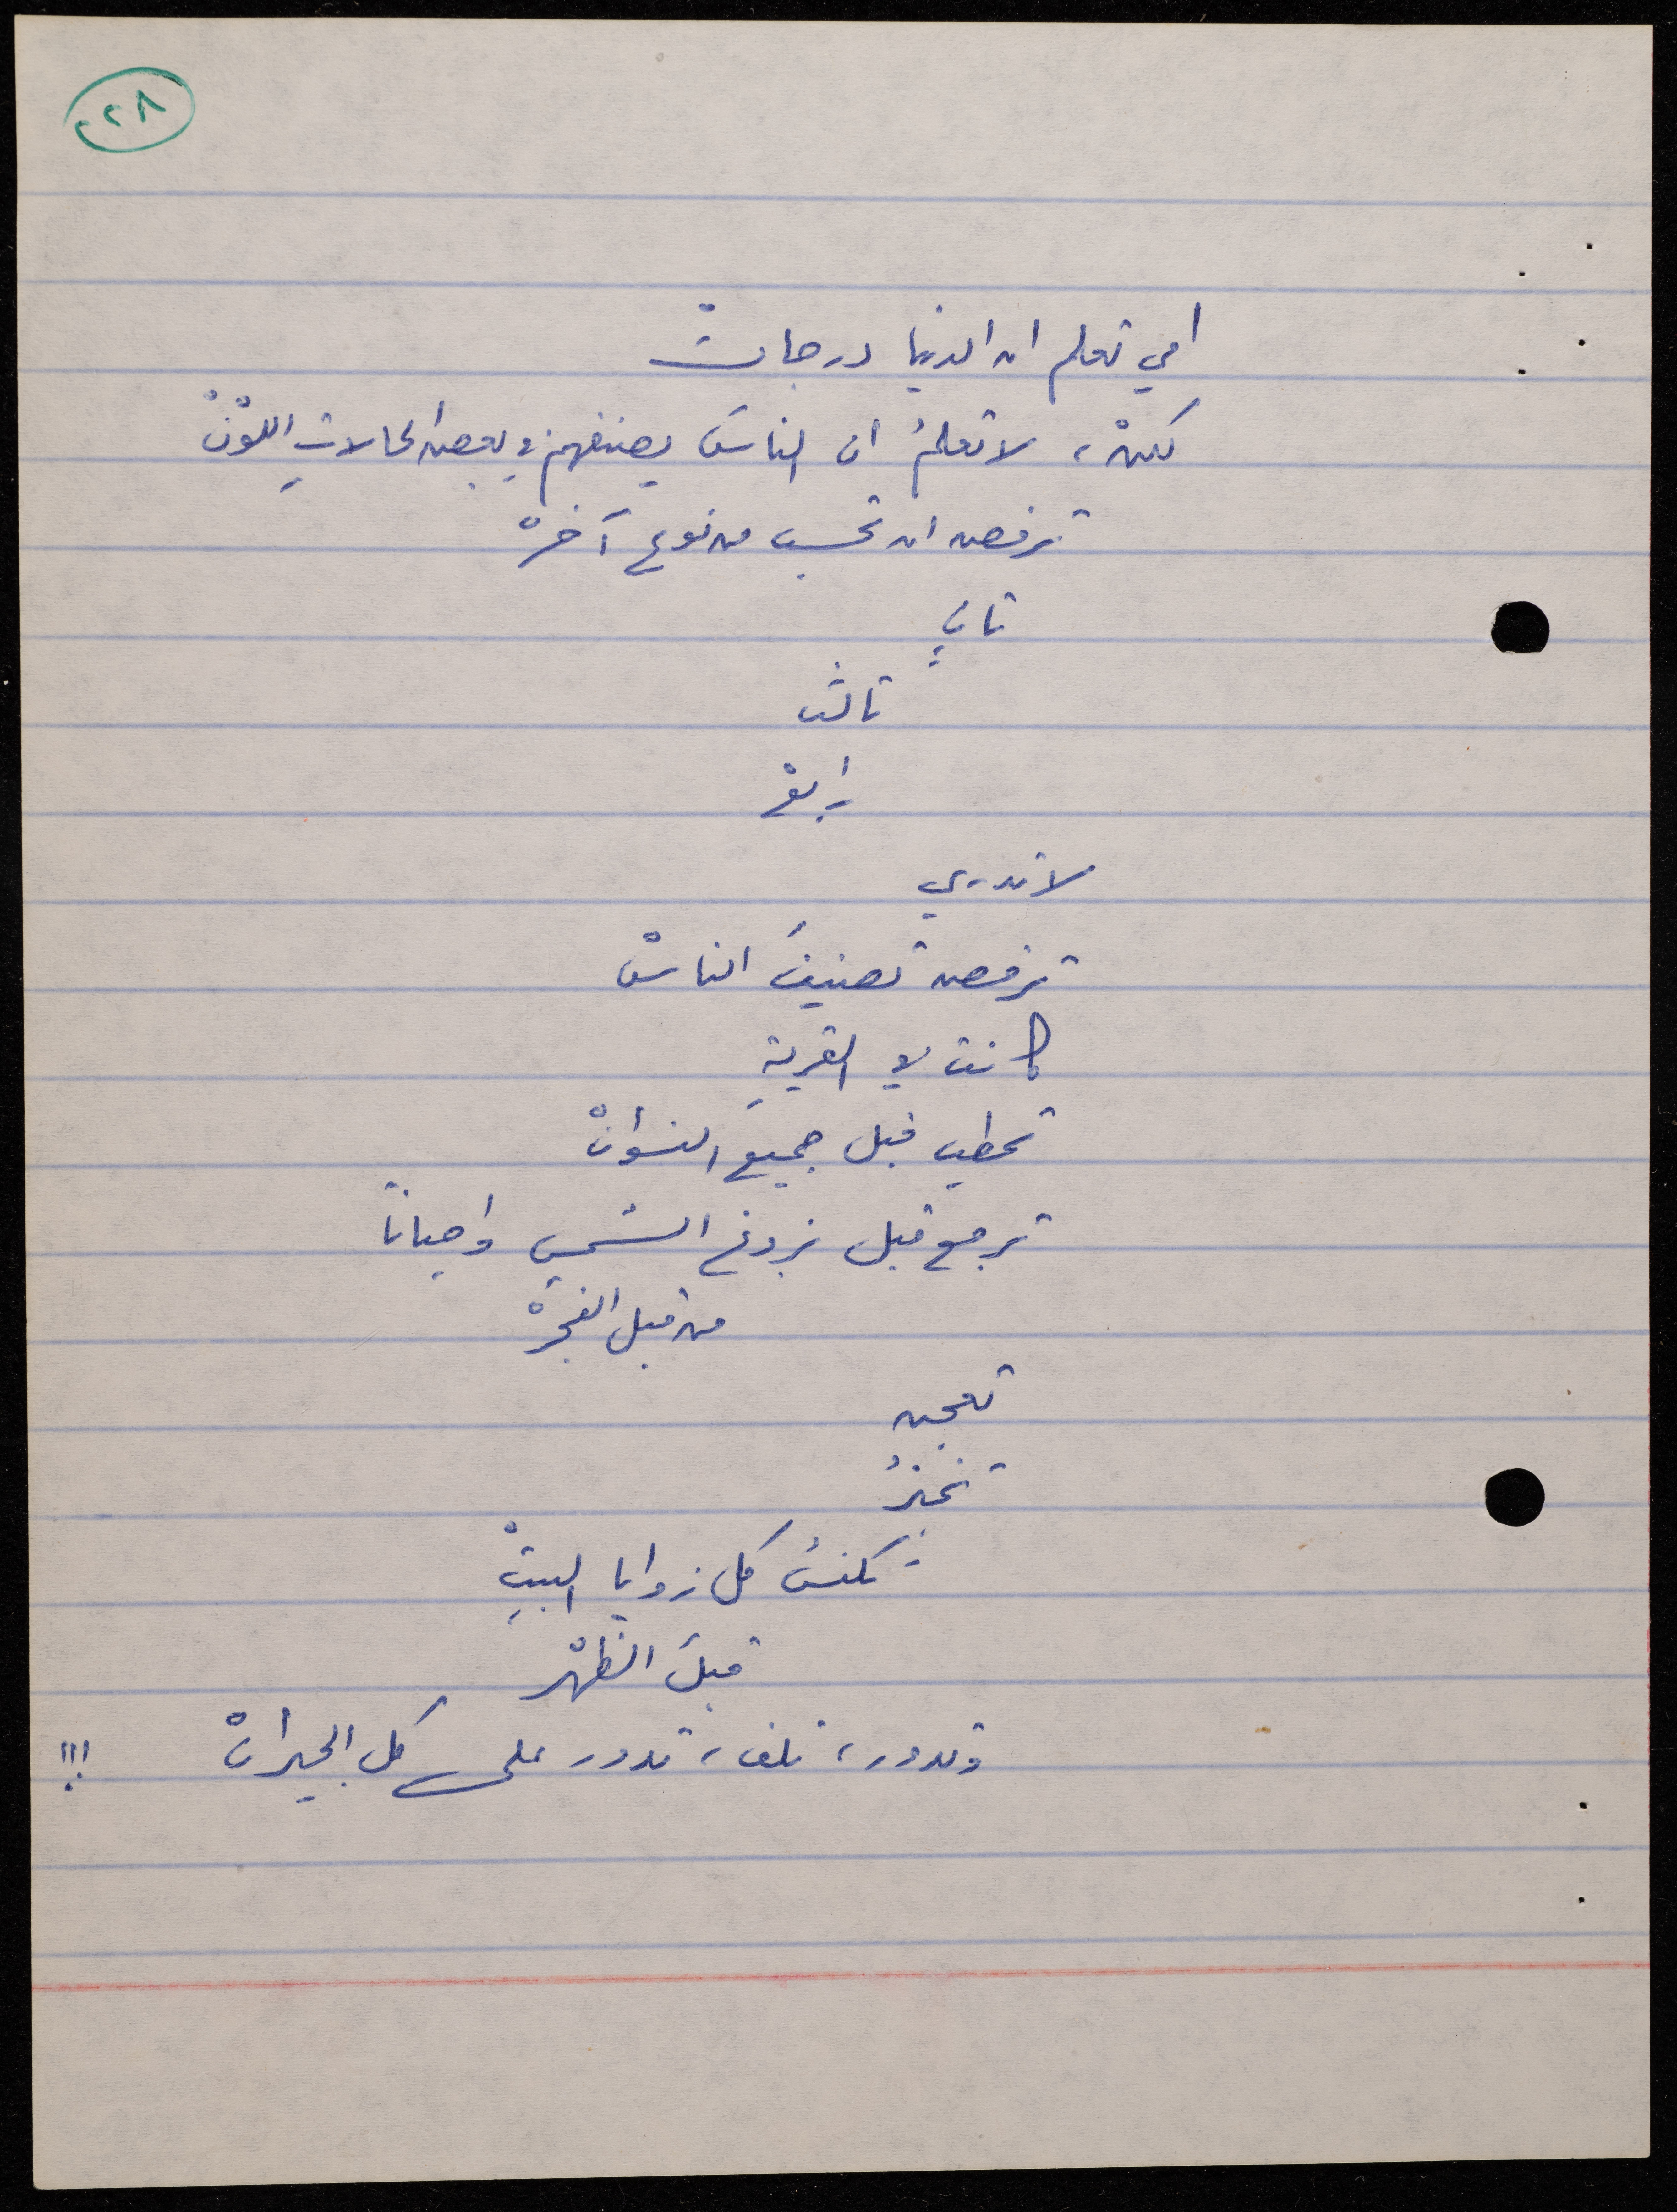 ٢٨
امي تعلم ان الدنيا درجاتْ
لكنْ، لا تعلمُ ان الناسَ يصنفهم في بعض الحالاتِ اللّوْنْ
ترفض ان تحسب من نوع آخرْ
ثانٍ
ثالث
رابعْ
لا تدري
ترفض تصنيفَ الناسْ
كانت في القريةِ
تحطب قبل جميعَ النسوانْ
ترجع قبل بزوغ الشمسِ واحياناً
من قبل الفجرْ
تعجن
تخبزُ
تكنسُ كل زوايا البيتِْ
قبلَ الظهْر
وتدور، تلف، تدور على كل الجيرانْ !!!